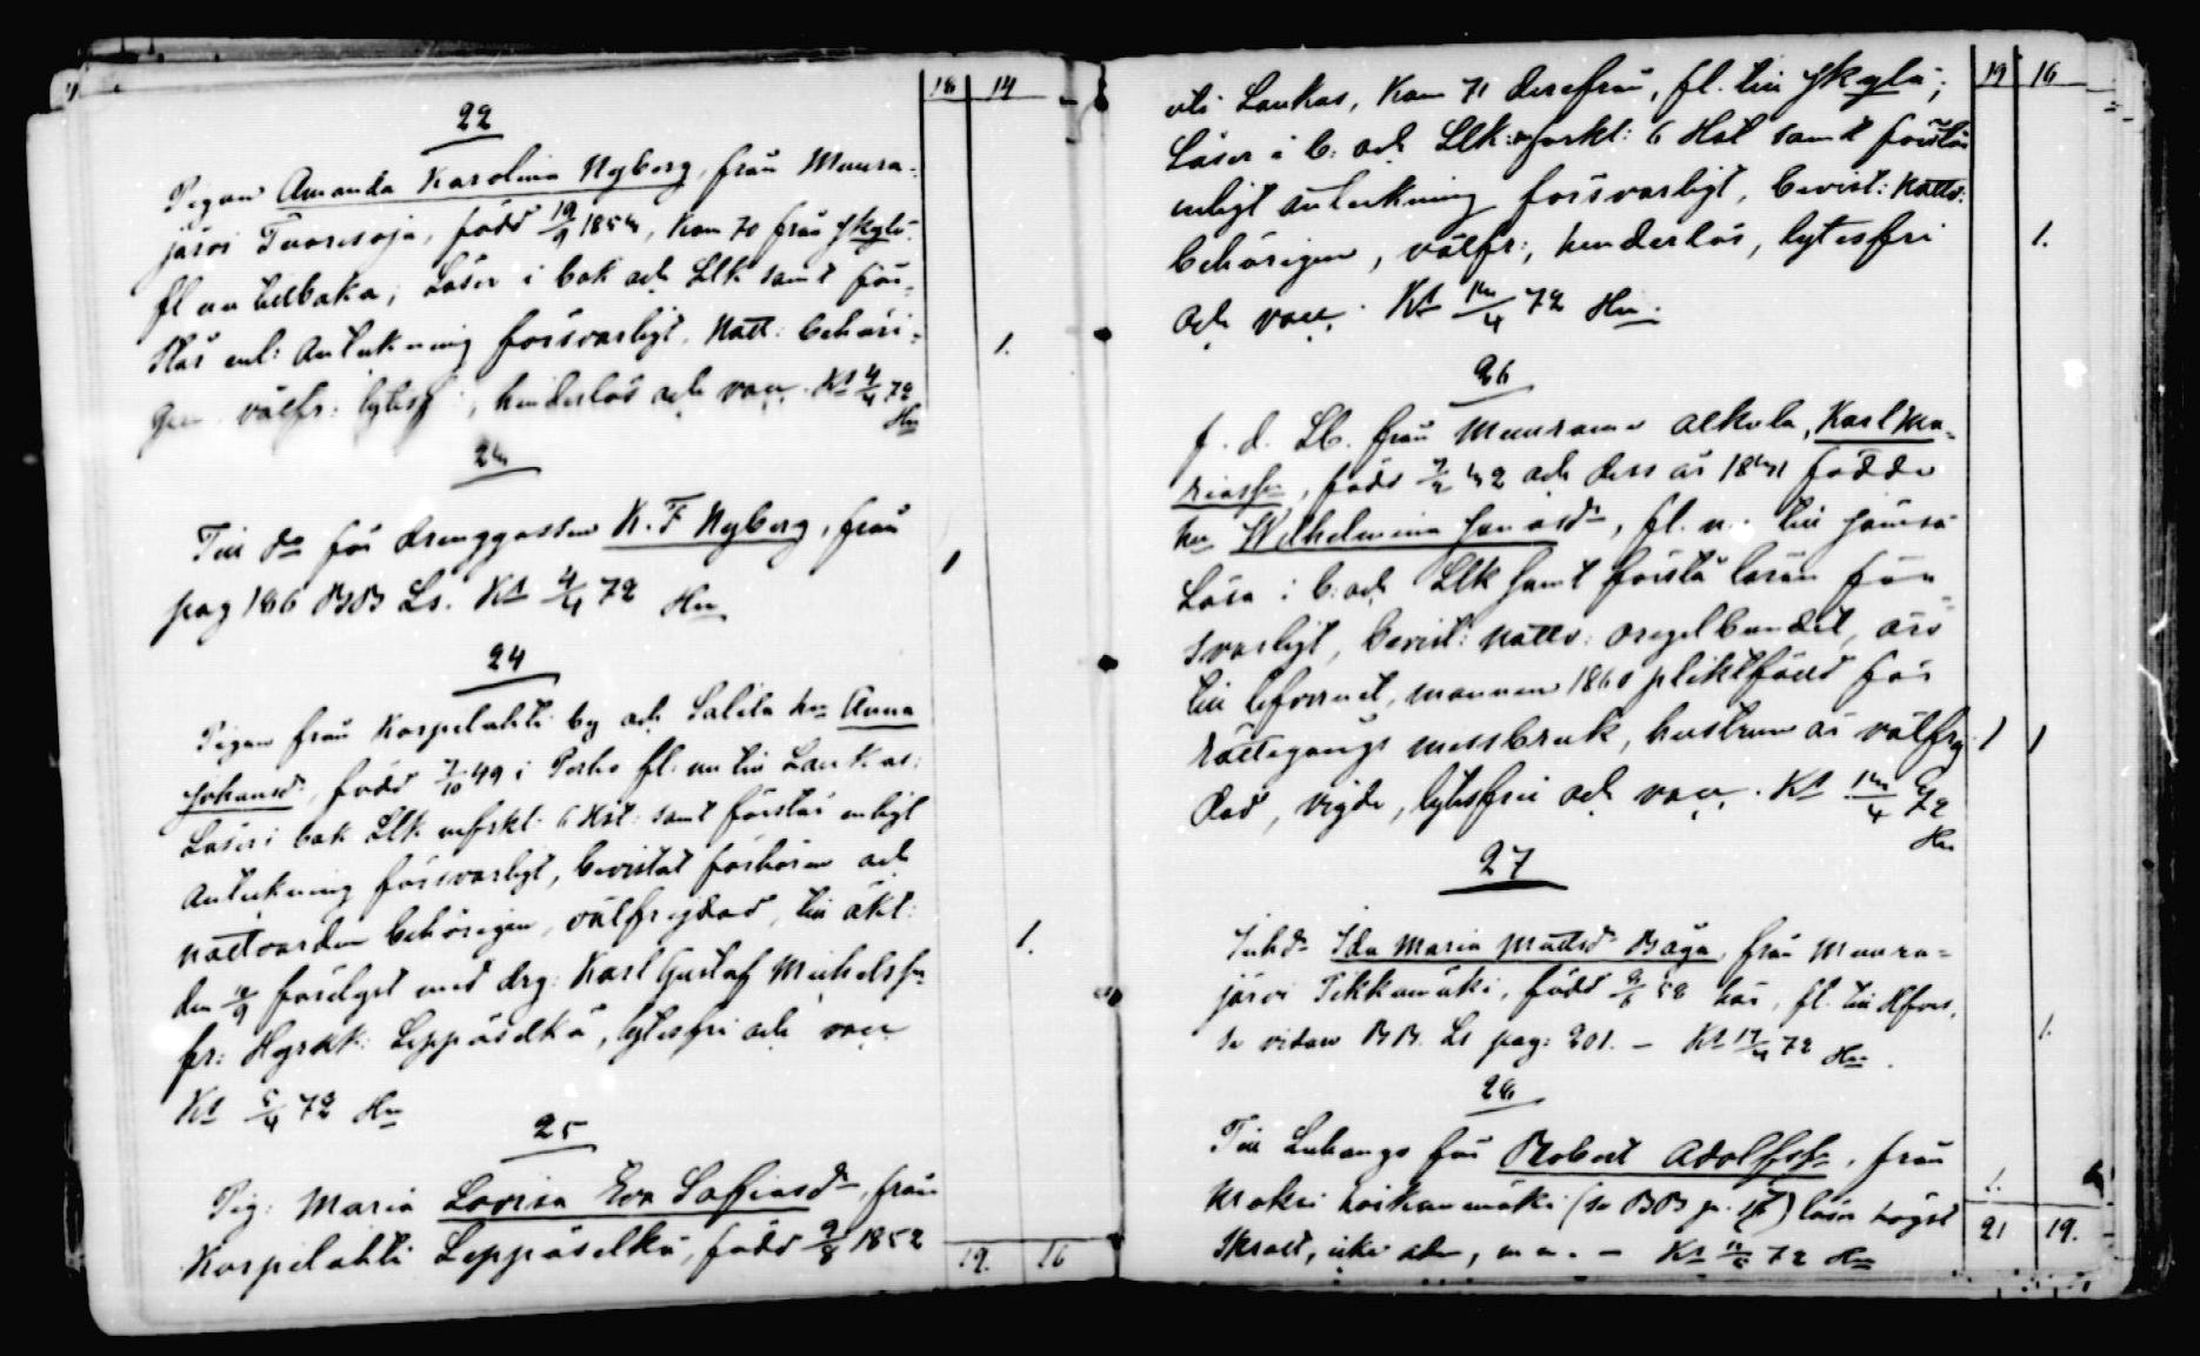 18 14
22
Pigan Amanda Karolina Nyberg, från Muura-
järvi Tuoresoja, född 19/9 1853, kom 70 från Jkylä.
fl nu tillbaka; Läser i bok och Llk samt för-
står enl: anteckning försvarligt. Natt: behöri-
gen välfr: lytesf, hinderlös och vacc. Kl 4/4 72
Hn
1.
23
Till do för drenggossen K. F Nyberg, från
pag 186 BB Ls. Kl 4/4 72 Hn
1
24
Pigan från Korpilahti by och Salila hn Anna
Johansdr, född 7/10 49 i Perho fl. nu till Laukas:
Läser i bok Llk m frkl. 6 Hst: samt förstår enligt
Anteckning försvarligt, bevistat förhören och
nattvarden behörigen, välfrejdad, till äkt:
den /9 förelyst med drg: Karl Gustaf Michelsson
fr: Leppäselkä, lytesfri och vacc
Kl 5/4 72 Hn
1.
25
Pig: Maria Lovisa Eva Saffiasdr, från
Korpilahti Leppäselkä, född 9/8 1852
19. 16
19 16
uti Laukas, kom 71 derefrån, fl. till Jkylä;
Läser i b: och Llk: m forkl: 6 Hst samt förstår
enligt anteckning försvarligt, bevist: nattv:
behörigen, välfr:, hinderlös, lytesfri
och vacc. Kl 13/4 72 Hn.
1.
26
f. d. Lb. från Muurame Alkula, Karl Ma-
tiasson, född 7/2 32 och dess år 1831 födde
hu Wilhelmina Jonasdr, fl. n. till Jämsä
Läsa i b: och Llk samt förstå läran för-
svarligt, bevist: nattv: oregelbundet, äro
till lefvernet, mannen 1860 pliktfäld för
rättegångs missbruk, hustrun är välfrej-
dad, vigde, lytesfrii och vacc. Kl 13/4 72
Hn
1 1
27
Inhdr Ida Maria Mattsdr Båga, från Muura-
järvi Pikkumäki, född 9/6 58 här, fl. till Hfors,
se vidare BB. Ls pag: 201. – Kl 17/4 72 Hn.
1.
28
Till Luhango för Robert Adolfsson, från
Kroksi Koikanmäki (se BB p. ) läser högst
skralt, icke ahn, m m. – Kl 72 Hn
1.
21 19.